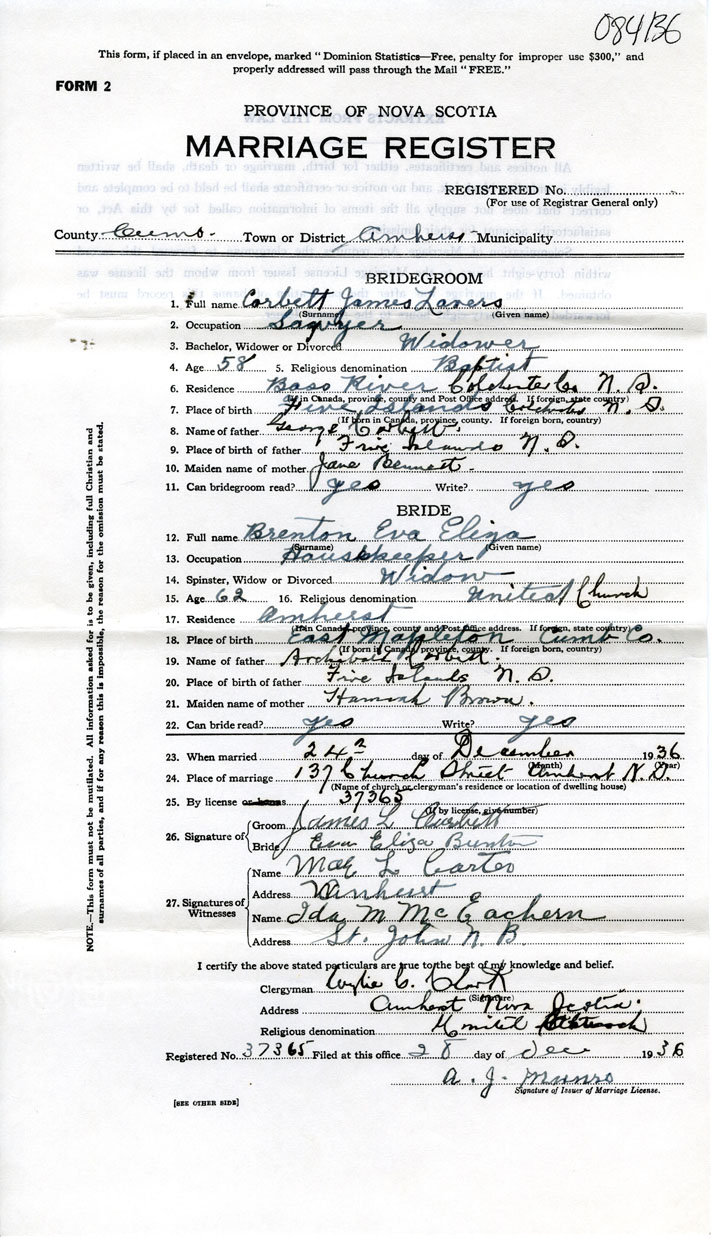 084136
This form, if placed in an envelope, marked "Dominion Statistics—Free, penalty for improper use $300," and
properly addressed will pass through the Mail "FREE."
FORM 2
PROVINCE OF NOVA SCOTIA
MARRIAGE REGISTER
REGISTERED No.
(For use of Registrar General only)
County Town or District Amherst Municipality
BRIDEGROOM
1. Full name Corbett James Lavers
(Surname) (Given name)
2. Occupation Sawyer
3. Bachelor, Widower or Divorced Widower
4. Age 58 5. Religious denomination Baptist
6. Residence Bass River Colchester Co N. S.
(If in Canada, province, county and Post Office address. If foreign, state country)
7. Place of birth Five Islands Colchester N. S.
(If born in Canada, province, county. If foreign born, country)
8. Name of father George Corbett
9. Place of birth of father Five Islands N. S.
10. Maiden name of mother Jane Bennett
11. Can bridegroom read? yes Write? yes
BRIDE
12. Full name Brenton Eva Eliza
(Surname) (Given name)
13. Occupation Housekeeper
14. Spinster, Widow or Divorced Widow
15. Age 62 16. Religious denomination United Church
17. Residence Amherst
(If in Canada, province, county and Post Office address. If foreign, state country)
18. Place of birth East Mapleton Cumb Co.
(If born in Canada, province, county. If foreign born, country)
19. Name of father Archibald Corbett.
20. Place of birth of father Five Islands N. S.
21. Maiden name of mother Hannah Brown.
22. Can bride read? yes Write? yes
23. When married 24 day of December 1936
(Month) (Year)
24. Place of marriage 137 Church Street Amherst N.S.
(Name of church or clergyman's residence or location of dwelling house)
25. By license or banns 37365
(If by license, give number)
26. Signature of
Groom James L Corbett
Bride Eva Eliza Brenton
27. Signatures of Witnesses
Name Mae L Carter
Address Amherst
Name Ida M McEachern
Address St. John N. B.
I certify the above stated particulars are true to the best of my knowledge and belief.
Clergyman C. Clark
(Signature)
Address Amherst Nova Scotia.
Religious denomination United
Registered No. 37365 Filed at this office 28 day of Dec 1936
A. J. Munro
Signature of Issuer of Marriage License.
[SEE OTHER SIDE]
NOTE.—This form must not be mutilated. All information asked for is to be given, including full Christian and
surnames of all parties, and if for any reason this is impossible, the reason for the omission must be stated.